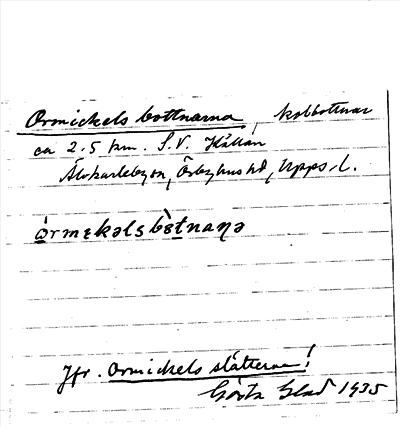 Ormickels bottnarna, kolbottnar
ca 2.5 km. S.V. Kållan
Älvkarleby sn, Örbyhus hd, Upps. l.
òrmekəlsbòtnaɳə
Jfr. Ormickels slåtterna!
Gösta Glad 1935